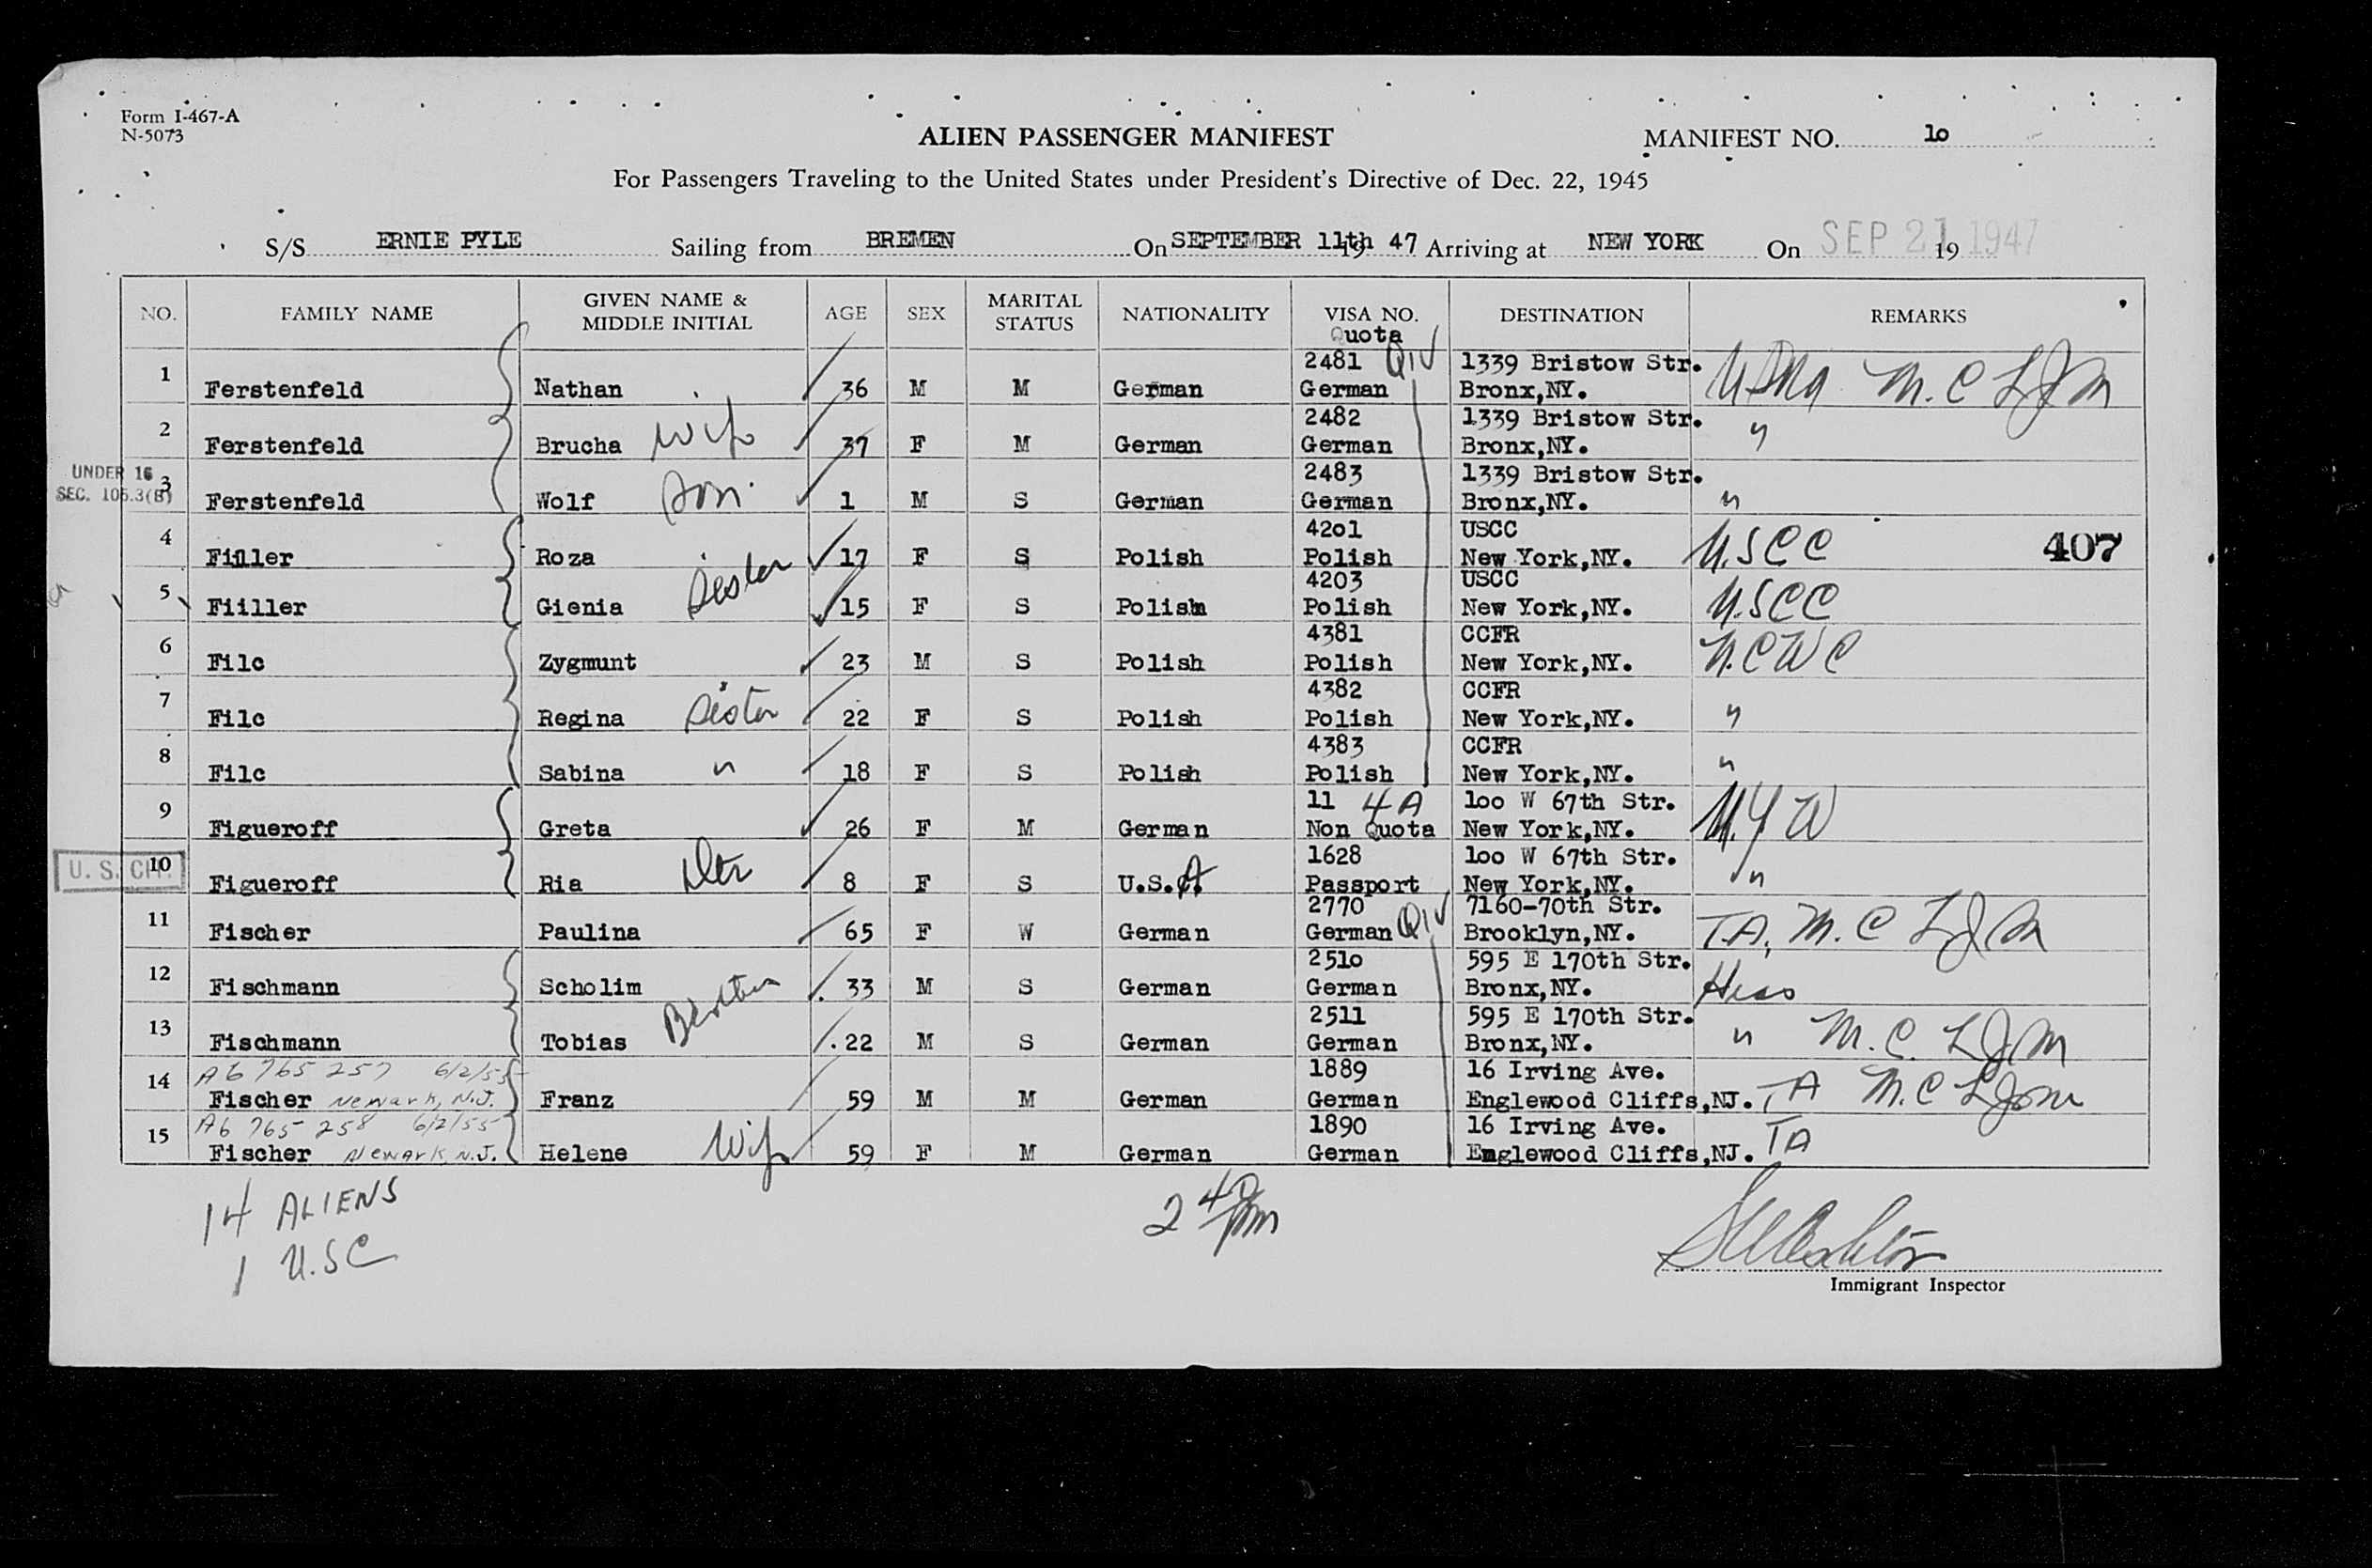 Form I-467-A
N-5073
ALIEN PASSENGER MANIFEST
MANIFEST NO. 1o
For Passengers Traveling to the United States under President's Directive of Dec. 22, 1945
S/S ERNIE PYLE Sailing from BREMEN On SEPTEMBER 11th 19 47 Arriving at NEW YORK On SEP 21 1947 19
NO. FAMILY NAME GIVEN NAME & MIDDLE INITIAL AGE SEX MARITAL STATUS NATIONALITY VISA NO. DESTINATION REMARKS
Quota
2481 QIV 1339 Bristow Str.
1 Ferstenfeld Nathan 36 M M German German Bronx,NY. M.C LJM
2482 1339 Bristow Str.
2 Ferstenfeld Brucha Wife 37 F M German German Bronx,NY. "
UNDER 16
SEC. 105.3(B)
2483 1339 Bristow Str.
3 Ferstenfeld Wolf Son 1 M S German German Bronx,NY. "
42o1 USCC
4 Filler Roza 17 F S Polish Polish New York,NY. U.SCC 407
4203 USCC
5 Fiiller Gienia Sister 15 F S Polish Polish New York,NY. U.SCC
4381 CCFR
6 Filc Zygmunt 23 M S Polish Polish New York,NY. N.CWC
4382 CCFR
7 Filc Regina Sister 22 F S Polish Polish New York,NY. "
4383 CCFR
8 Filc Sabina " 18 F S Polish Polish New York,NY. "
11 4A 1oo W 67th Str.
9 Figueroff Greta 26 F M German Non Quota New York,NY.
U. S. CIT.
1628 1oo W 67th Str.
10 Figueroff Ria Dtr 8 F S U.S.A Passport New York,NY. "
2770 QIV 7160-70th Str.
11 Fischer Paulina 65 F W German German Brooklyn,NY. T.A, M.C LJM
251o 595 E 170th Str.
12 Fischmann Scholim 33 M S German German Bronx,NY. Hias
2511 595 E 170th Str.
13 Fischmann Tobias Brother 22 M S German German Bronx,NY. " M.C. LJM
A6 765 257 6/2/55 1889 16 Irving Ave.
14 Fischer Newark, N.J. Franz 59 M M German German Englewood Cliffs,NJ. TA M.C LJM
A6 765 258 6/2/55 1890 16 Irving Ave.
15 Fischer Newark, N.J. Helene Wife 59 F M German German Englewood Cliffs,NJ. TA
14 ALIENS
1 U.SC
2 40 pm
Immigrant Inspector